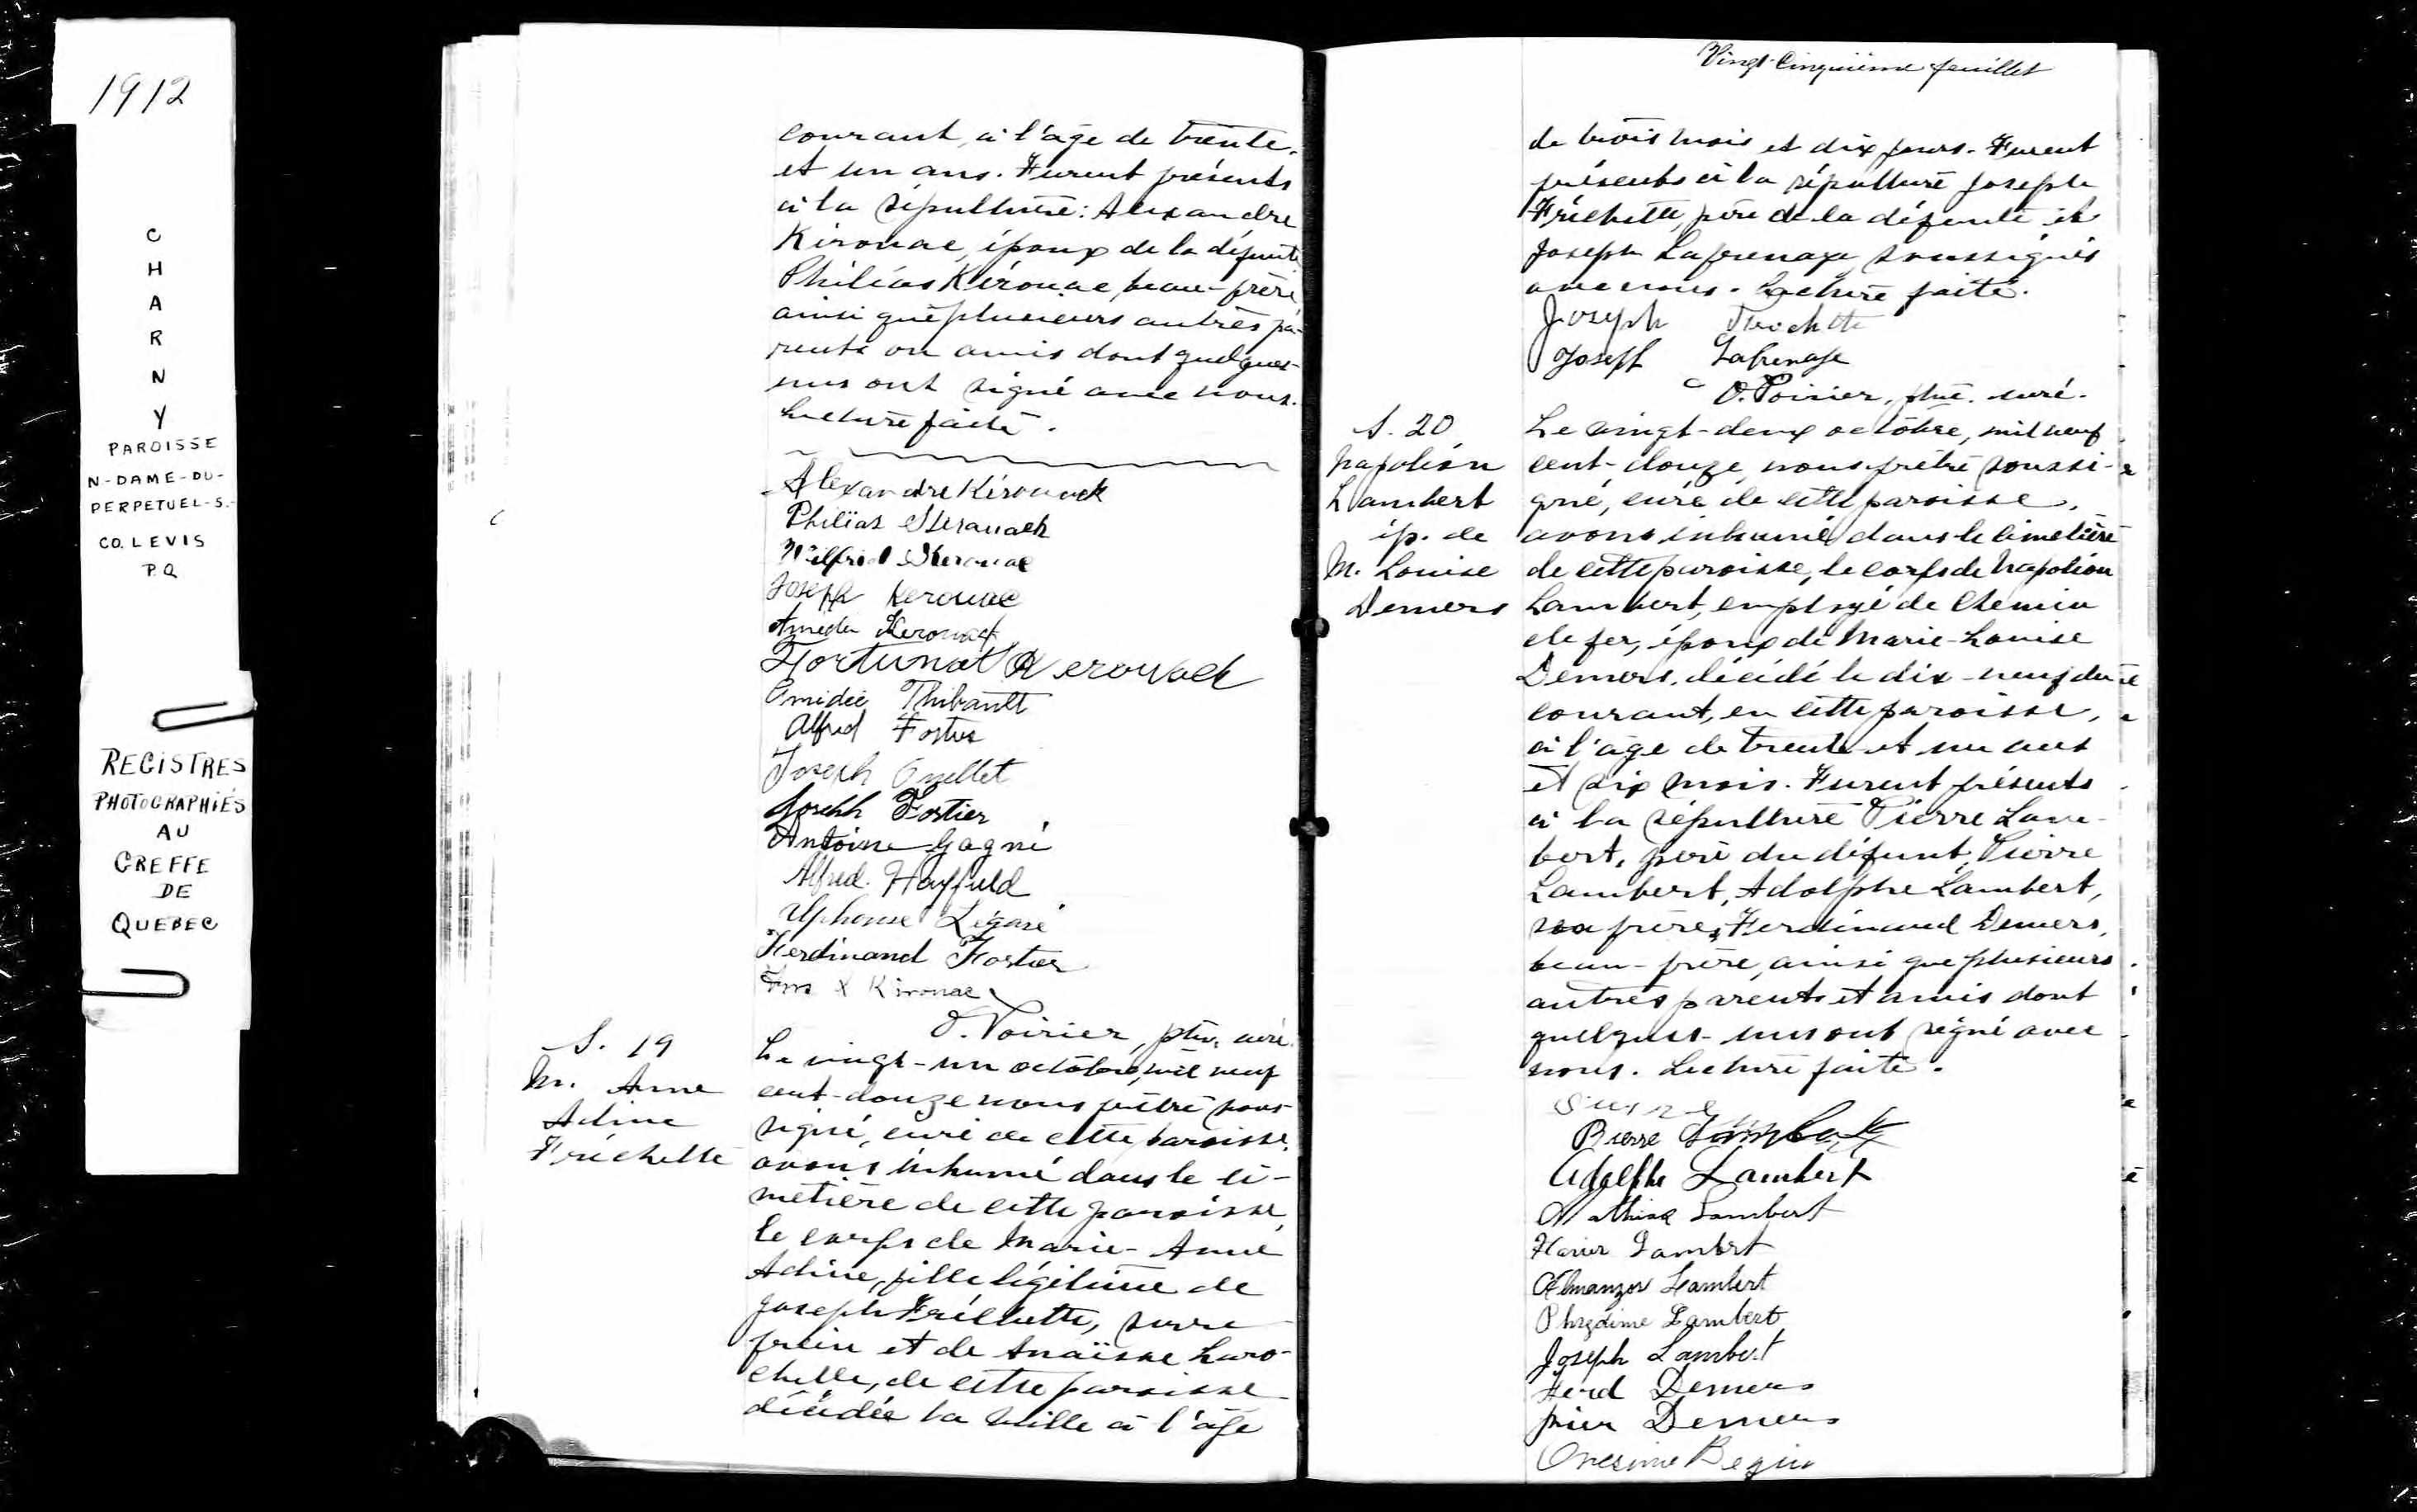 1912
C
H
A
R
N
Y
PAROISSE
N-DAME-DU-
PERPETUEL-S.-
CO. LEVIS
P.Q
REGISTRES
PHOTOGRAPHIÉS
AU
GREFFE
DE
QUEBEC
courant, à l'âge de trente-
et un ans. Furent présents
à la sépulture: Alexandre
Kirouac, époux de la défunte
Philéas Kérouac, beau-frère
ainsi que plusieurs autres pa-
rents ou amis dont quelques-
uns ont signé avec nous.
Lecture faite.
Alexandre Kérouack
Philias Kerouack
Wilfrid Kerouac
Joseph Kerouac
Amédé Kerouack
Fortunat Kerouack
Omidée Thibault
Alfred Fortier
Joseph Ouellet
Joseph Fortier
Antoine Gagné
Alfred Hayfield
Alphonse Légaré
Ferdinand Fortier
Frs X Kirouac
O. Poirier, ptre. curé.
S. 19
M. Anne
Adine
Fréchette
Le vingt-un octobre, mil neuf
cent-douze nous prêtre sous-
signé, curé de cette paroisse,
avons inhumé dans le ci-
metière de cette paroisse,
le corps de Marie-Anne
Adine, fille légitime de
Joseph Fréchette, serre
frein et de Anaïsse Laro-
chelle, de cette paroisse
décédée la veille à l'âge
Vingt-Cinquième feuillet
de trois mois et dix jours. Furent
présents à la sépulture Joseph
Fréchette, père de la défunte et
Joseph Lafrenaye soussignés
avec nous. Lecture faite.
Joseph Frechette
Joseph Lafrenaye
O. Poirier, ptre. curé.
S. 20
Napoléon
Lambert
ép. de
M. Louise
Demers
Le vingt-deux octobre, mil neuf
cent-douze, nous prêtre soussi-
gné, curé de cette paroisse,
avons inhumé dans le cimetière
de cette paroisse, le corps de Napoléon
Lambert, employé de chemin
de fer, époux de Marie-Louise
Demers, décédé le dix-neuf du
courant, en cette paroisse,
à l'âge de trente et un ans
et six mois. Furent présents
à la sépulture Pierre Lam-
bert, père du défunt, Pierre
Lambert, Adolphe Lambert,
frères, Ferdinand Demers,
beau-frère, ainsi que plusieurs
autres parents et amis dont
quelques-uns ont signé avec
nous. Lecture faite.
Pierre Lambert
Adolphe Lambert
Mathias Lambert
Lambert
Elmanzor Lambert
Phrédime Lambert
Joseph Lambert
Ferd Demers
Demers
Onesime Begin